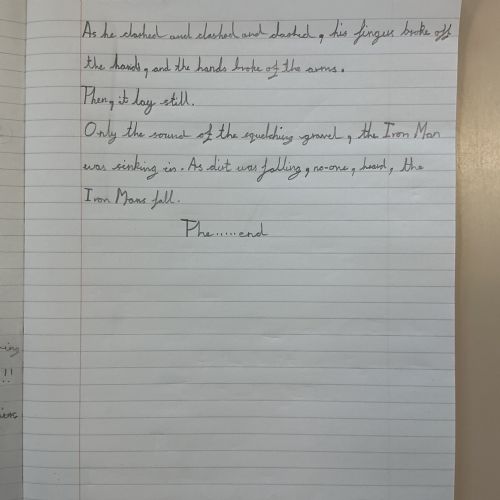 As he clashed and clashed and clashed, his fingers broke off
the hands, and the hands broke of the arms.
Then, it lay still.
Only the sound of the squelching gravel, the Iron Man
was sinking in. As dirt was falling, no-one, heard, the
Iron Mans fall.
The.....end
ing
!!